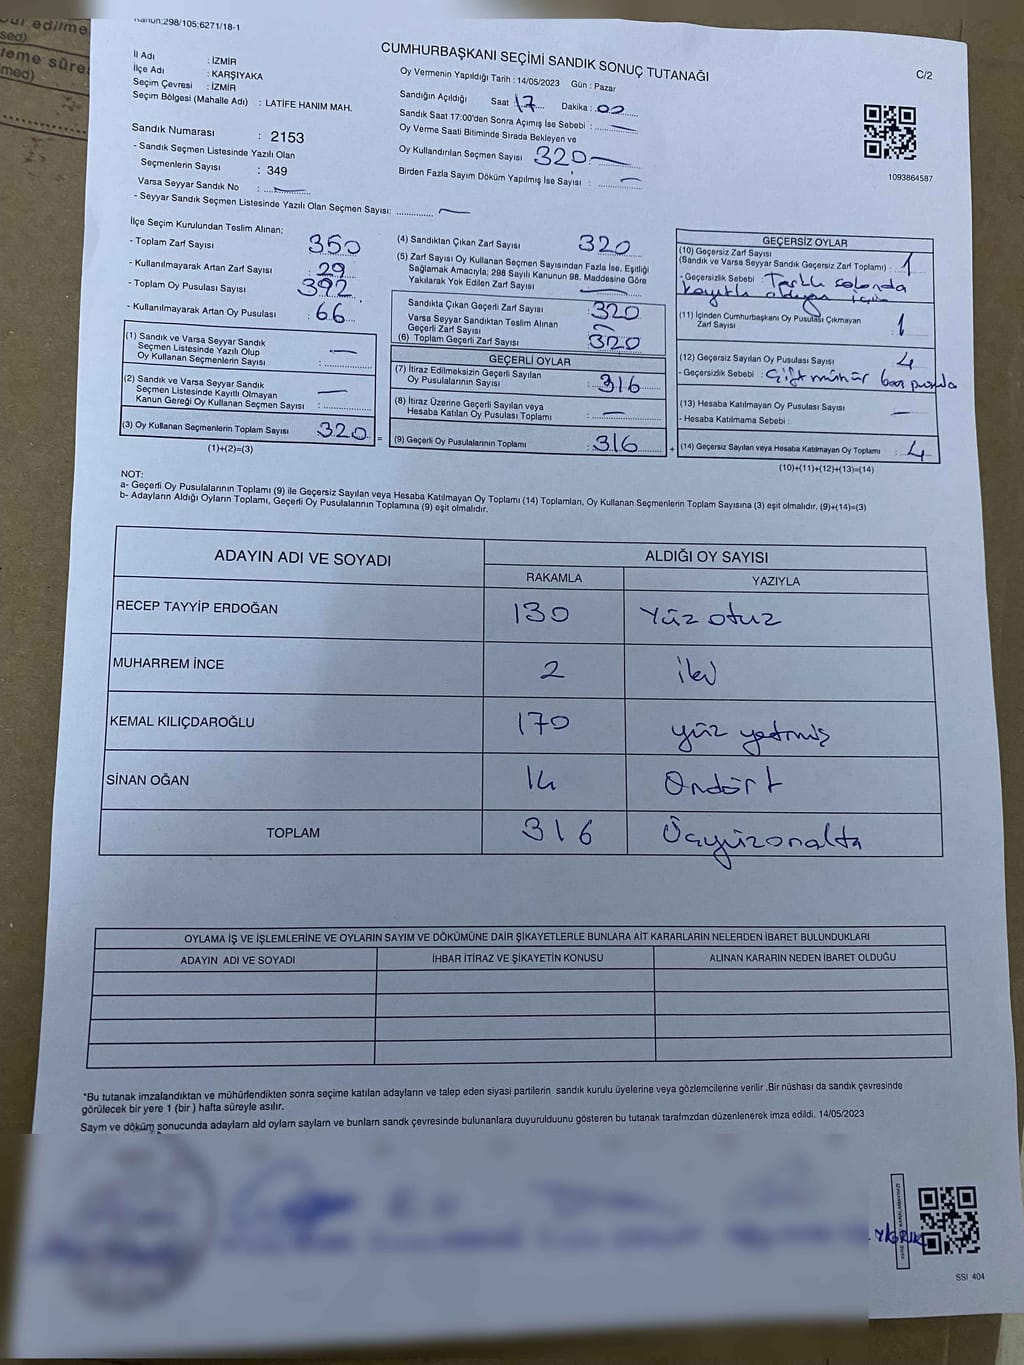 Kanun:298/105;6271/18-1
CUMHURBAŞKANI SEÇİMİ SANDIK SONUÇ TUTANAĞI
C/2
İl Adı : İZMİR
İlçe Adı : KARŞIYAKA
Seçim Çevresi : İZMİR
Seçim Bölgesi (Mahalle Adı) : LATİFE HANIM MAH.
Sandık Numarası : 2153
- Sandık Seçmen Listesinde Yazılı Olan
Seçmenlerin Sayısı : 349
Varsa Seyyar Sandık No : —
- Seyyar Sandık Seçmen Listesinde Yazılı Olan Seçmen Sayısı: —
Oy Vermenin Yapıldığı Tarih : 14/05/2023 Gün : Pazar
Sandığın Açıldığı Saat 17 Dakika : 02
Sandık Saat 17:00'den Sonra Açımış İse Sebebi : —
Oy Verme Saati Bitiminde Sırada Bekleyen ve
Oy Kullandırılan Seçmen Sayısı 320 —
Birden Fazla Sayım Döküm Yapılmış İse Sayısı : —
1093864587
İlçe Seçim Kurulundan Teslim Alınan;
- Toplam Zarf Sayısı 350
- Kullanılmayarak Artan Zarf Sayısı : 29
- Toplam Oy Pusulası Sayısı 392
- Kullanılmayarak Artan Oy Pusulası : 66
(1) Sandık ve Varsa Seyyar Sandık
Seçmen Listesinde Yazılı Olup
Oy Kullanan Seçmenlerin Sayısı : —
(2) Sandık ve Varsa Seyyar Sandık
Seçmen Listesinde Kayıtlı Olmayan
Kanun Gereği Oy Kullanan Seçmen Sayısı : —
(3) Oy Kullanan Seçmenlerin Toplam Sayısı 320 =
(1)+(2)=(3)
(4) Sandıktan Çıkan Zarf Sayısı 320
(5) Zarf Sayısı Oy Kullanan Seçmen Sayısından Fazla İse, Eşitliği
Sağlamak Amacıyla; 298 Sayılı Kanunun 98. Maddesine Göre
Yakılarak Yok Edilen Zarf Sayısı : —
Sandıkta Çıkan Geçerli Zarf Sayısı : 320
Varsa Seyyar Sandıktan Teslim Alınan
Geçerli Zarf Sayısı : —
(6) Toplam Geçerli Zarf Sayısı : 320
GEÇERLİ OYLAR
(7) İtiraz Edilmeksizin Geçerli Sayılan
Oy Pusulalarının Sayısı : 316
(8) İtiraz Üzerine Geçerli Sayılan veya
Hesaba Katılan Oy Pusulası Toplamı : —
(9) Geçerli Oy Pusulalarının Toplamı : 316 +
GEÇERSİZ OYLAR
(10) Geçersiz Zarf Sayısı
(Sandık ve Varsa Seyyar Sandık Geçersiz Zarf Toplamı) : 1
- Geçersizlik Sebebi : Farklı salonda
kayıtlı olduğu için
(11) İçinden Cumhurbaşkanı Oy Pusulası Çıkmayan
Zarf Sayısı : 1
(12) Geçersiz Sayılan Oy Pusulası Sayısı : 4
- Geçersizlik Sebebi : Çift mühür boş pusula
(13) Hesaba Katılmayan Oy Pusulası Sayısı : —
- Hesaba Katılmama Sebebi :
(14) Geçersiz Sayılan veya Hesaba Katılmayan Oy Toplamı : 4
(10)+(11)+(12)+(13)=(14)
NOT:
a- Geçerli Oy Pusulalarının Toplamı (9) ile Geçersiz Sayılan veya Hesaba Katılmayan Oy Toplamı (14) Toplamları, Oy Kullanan Seçmenlerin Toplam Sayısına (3) eşit olmalıdır. (9)+(14)=(3)
b- Adayların Aldığı Oyların Toplamı, Geçerli Oy Pusulalarının Toplamına (9) eşit olmalıdır.
ADAYIN ADI VE SOYADI ALDIĞI OY SAYISI
RAKAMLA YAZIYLA
RECEP TAYYİP ERDOĞAN 130 Yüz otuz
MUHARREM İNCE 2 iki
KEMAL KILIÇDAROĞLU 170 yüz yetmiş
SİNAN OĞAN 14 Ondört
TOPLAM 316 Üçyüzonaltı
OYLAMA İŞ VE İŞLEMLERİNE VE OYLARIN SAYIM VE DÖKÜMÜNE DAİR ŞİKAYETLERLE BUNLARA AİT KARARLARIN NELERDEN İBARET BULUNDUKLARI
ADAYIN ADI VE SOYADI İHBAR İTİRAZ VE ŞİKAYETİN KONUSU ALINAN KARARIN NEDEN İBARET OLDUĞU
*Bu tutanak imzalandıktan ve mühürlendikten sonra seçime katılan adayların ve talep eden siyasi partilerin sandık kurulu üyelerine veya gözlemcilerine verilir .Bir nüshası da sandık çevresinde
görülecek bir yere 1 (bir ) hafta süreyle asılır.
Saym ve döküm sonucunda adaylarn ald oylarn saylarn ve bunlarn sandk çevresinde bulunanlara duyurulduunu gösteren bu tutanak tarafmzdan düzenlenerek imza edildi. 14/05/2023
SSI 404